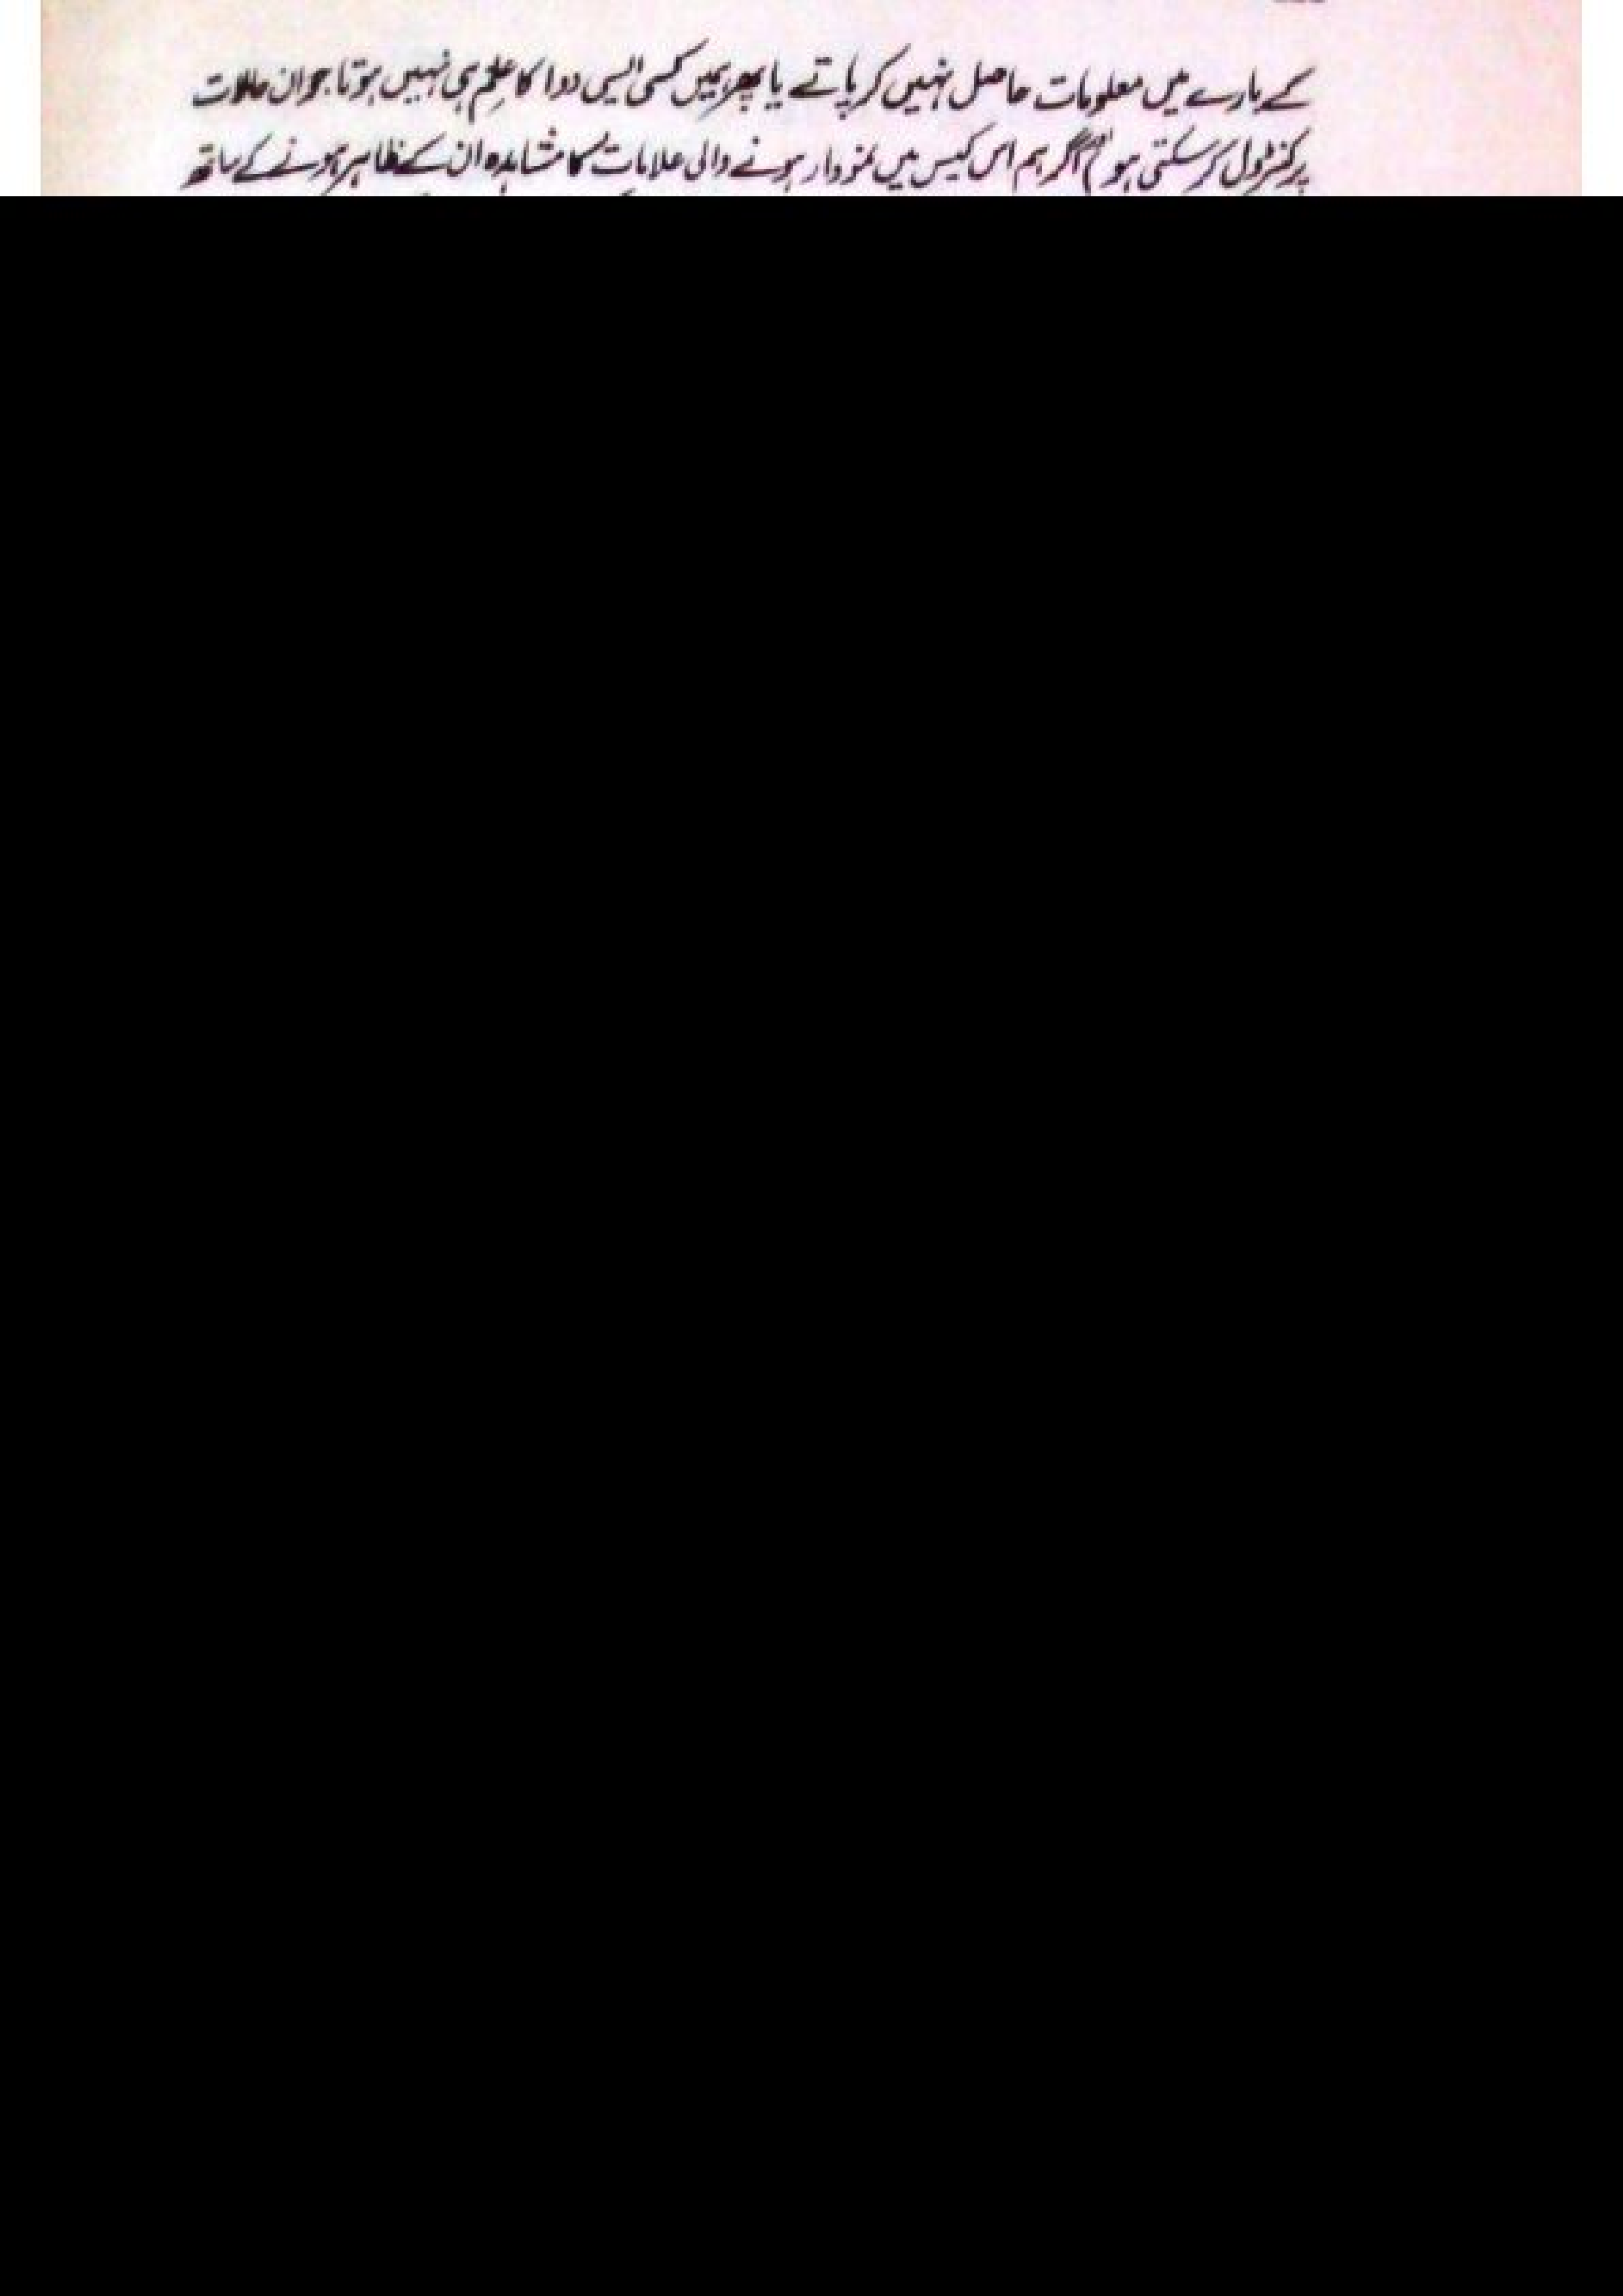 کے بارے میں معلومات حاصل نہیں کر پاتے یا پھر ہمیں کسی ایسی دوا کا علم ہی نہیں ہوتا جو ان حالات
پر کنٹرول کر سکتی ہو اگر ہم اس کیس میں نمودار ہونے والی علامات کا مشاہدہ ان کے ظاہر ہونے کے ساتھ